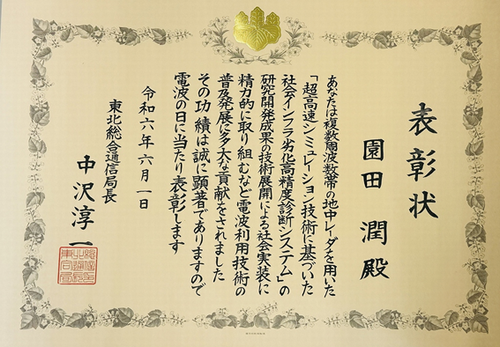 表彰状
園田 潤 殿
あなたは複数周波数帯の地中レーダを用いた
「超高速シミュレーション技術に基づいた
社会インフラ劣化高精度診断システム」の
研究開発成果の技術展開による社会実装に
精力的に取り組むなど電波利用技術の
普及発展に多大な貢献をされました
その功績は誠に顕著でありますので
電波の日に当たり表彰します
令和六年六月一日
東北総合通信局長
中沢淳一